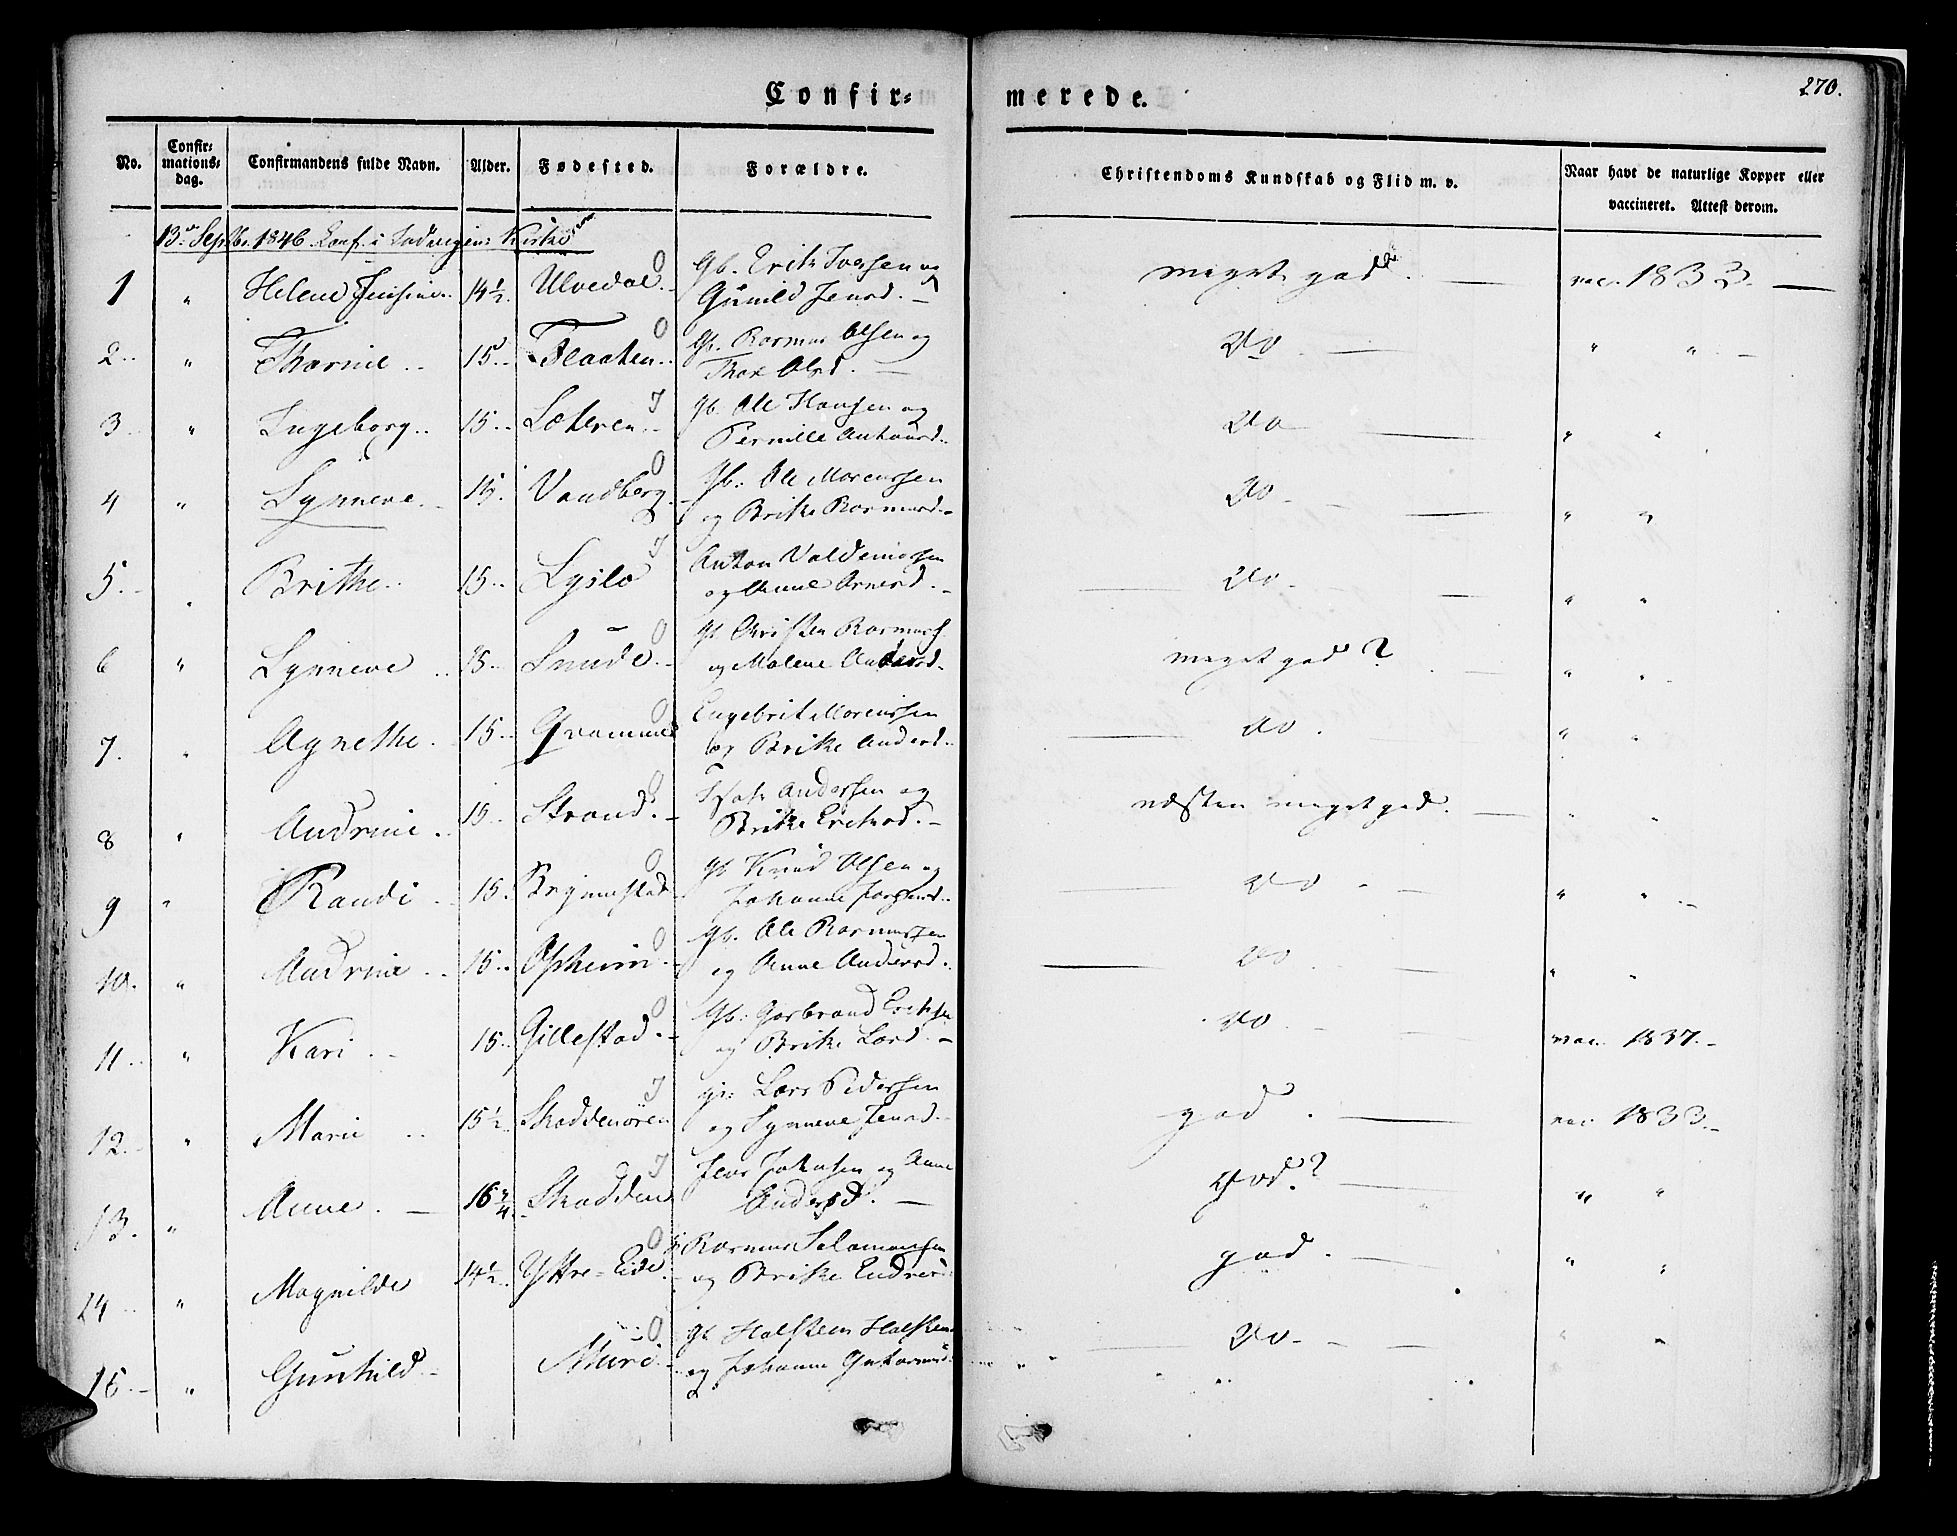 Confir=
merede.
270.
No.
Confir=
mations=
dag.
Confirmandens fulde Navn.
Alder.
Fødested.
Forældre.
Christendoms Kundskab og Flid m. v.
Naar havt de naturlige Kopper eller
vaccineret. Attest derom.
13de Septbr. 1846. Conf. i Kirke
1 " Helene Jensine.. 14½. Ulvedal. O Gb. Erik Iversen og
Gunild Jensd. meget god. vac. 1833.
2.. " Thorine .. 15.. Flaaten.. O Gb. Rasmus Olsen og
Olsd. do " "
3.. " Ingeborg.. 15.. I Gb. Ole Hansen og
Pernille do " "
4 " Synneve. 15. Vandberg. O Gb. Ole Monssen
og Brithe Rasmusd. do " "
5. " Brithe.. 15.. Lyslo I Anton
og Anne Arnesd. do " "
6 " Synneve 15.. Snüde. O Gb Christen Rasmuss
og Malene Andersd. meget god? " "
7. " Agnethe. 15.. O Engebrit Monssen
og Brithe Andersd.. do. " "
8 " Andrine. 15.. Strand. O Andersen og
Brithe Ericksd. næsten meget god. " "
9 " Randi 15. O Gb Knud Olsen og
Johanne do " "
10. " Andrine 15.. Opheim. O Gb. Ole Rasmussen
og Anne Andersd. do " "
11.. " Kari. 15.. Gillestad. O Gb: Gerbrand Eriksn
og Brithe Larsd. do vac. 1837.
12. " Marie .. 15½. Skaddenøren I Lars Pedersen
og Synneve Jensd. god. vac. 1833.
13. " Anne. 16¾. Skadden I Jens Johnsen og Anne
Andersd. god? " "
14 " Magnilde 14½. Yttre=Eide. O Rasmus Salamonsen
og Brithe Endresd. god. " "
15. " Gunhild. Muri O Gb Halsteen
og Johanne do " "